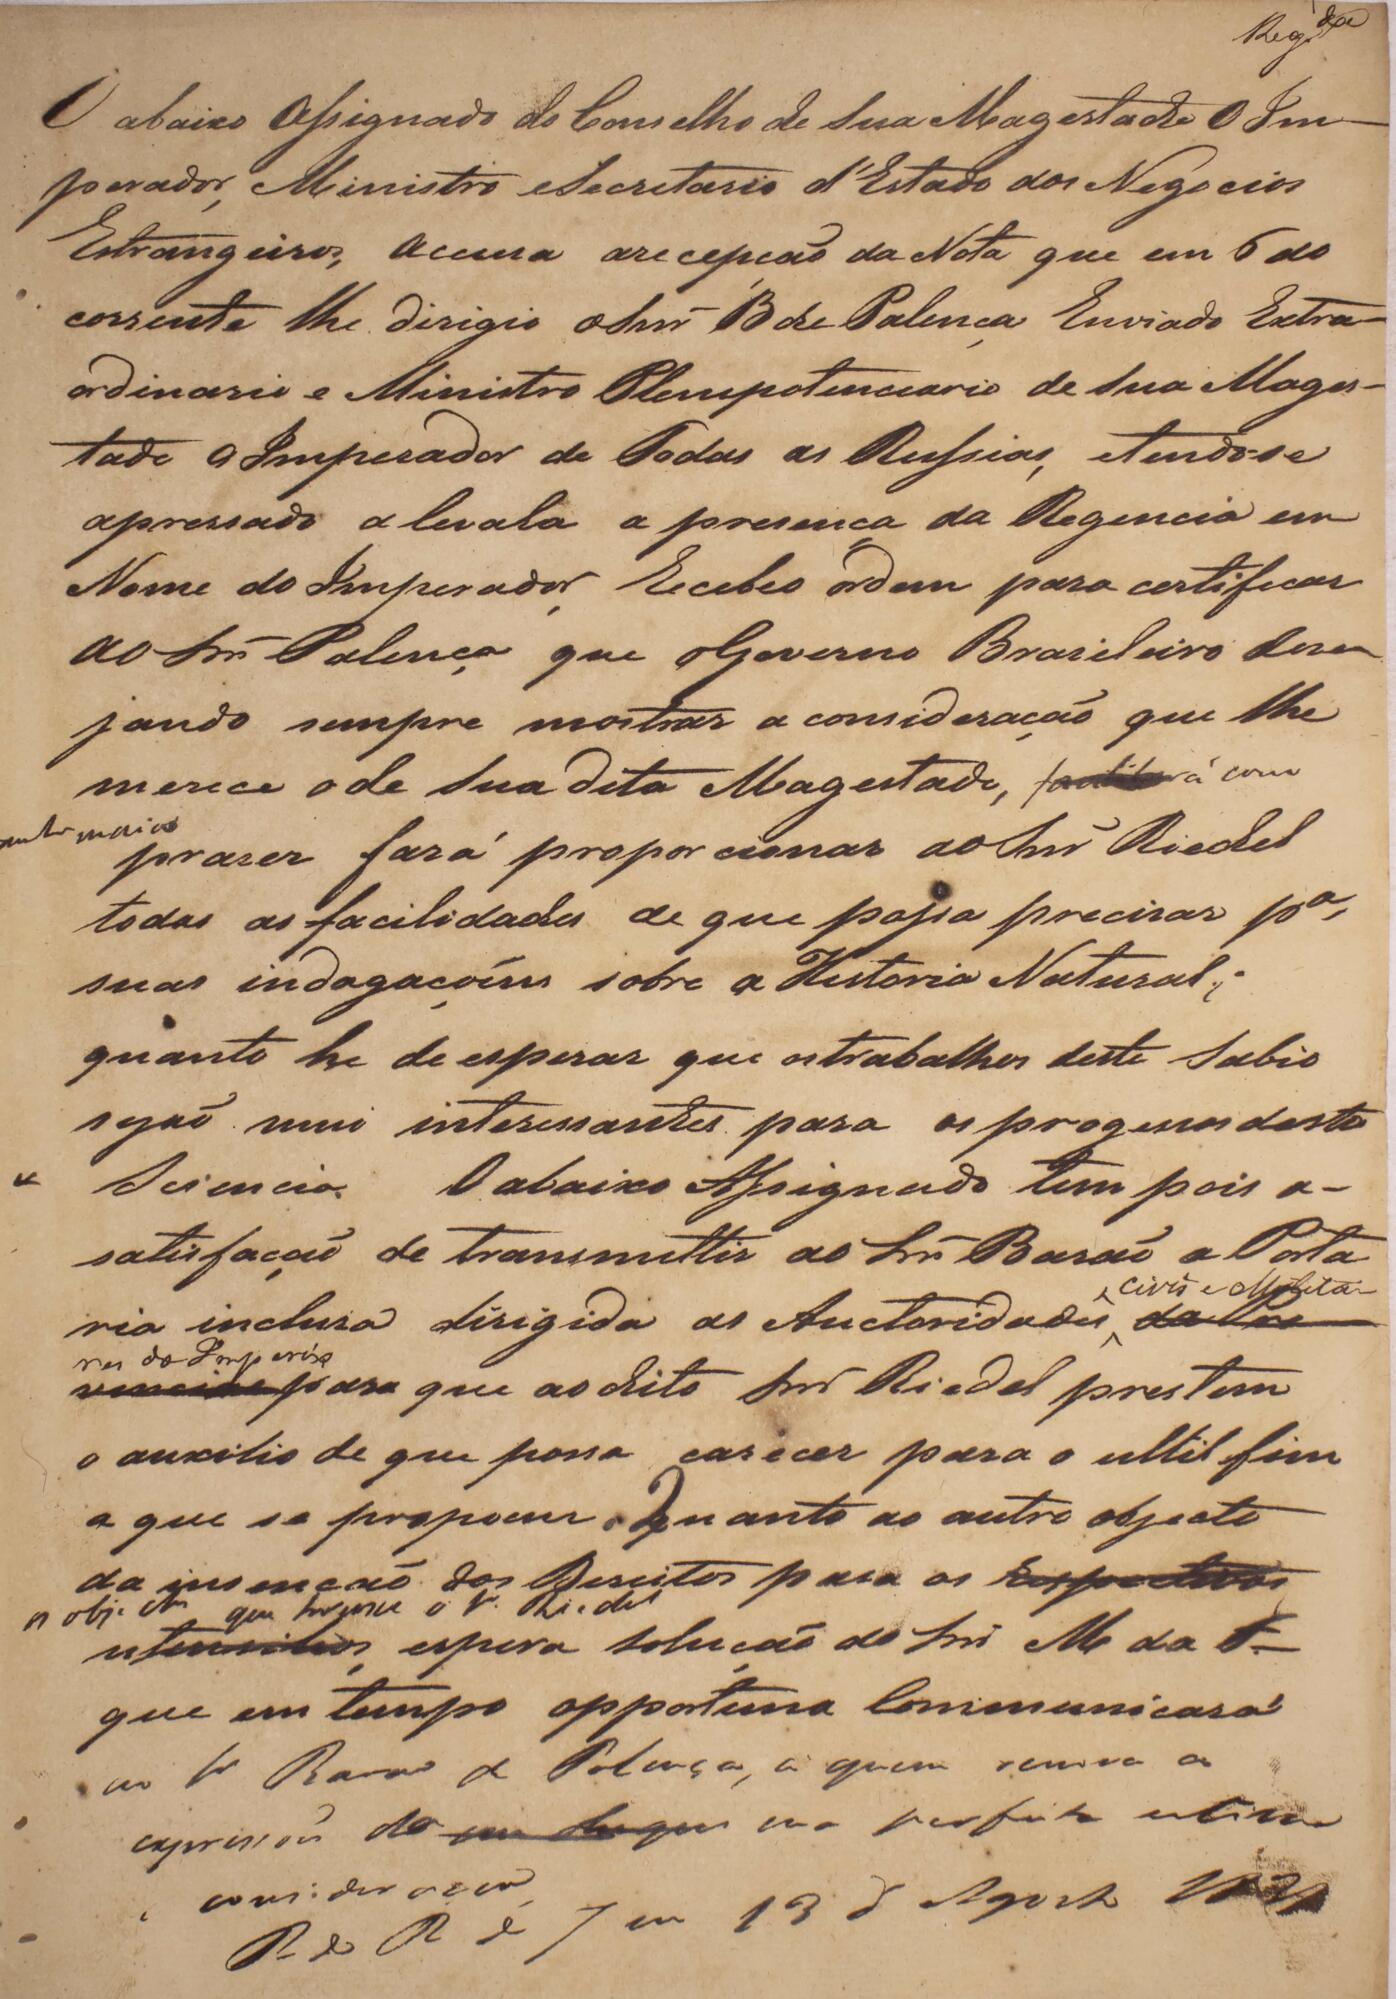 Reg.da
O abaixo Assignado do Conselho de Sua Magestade O Im-
perador, Ministro e Secretario d'Estado dos Negocios
Estrangeiros, accusa a recepção da Nota que em 6 do
corrente lhe dirigio o Snr B de Palença Enviado Extra-
ordinario e Ministro Plenipotenciario de Sua Mages-
tade O Imperador de Todas as Russias, e tendo-se
apressado a levala a presença da Regencia em
Nome do Imperador, Recebeo ordem para certificar
ao Snr Palença que o Governo Brasileiro dese-
jando sempre mostrar a consideração que lhe
merece o de Sua dita Magestade, com
tanto maior
praser fará proporcionar ao Snr Riedel
todas as facilidades de que possa precisar pa.
suas indagaçoens sobre a Historia Natural;
quanto he de esperar que os trabalhos deste Sabio
sejaõ mui interessantes para os progressos desta
Sciencia. O abaixo Assignado tem pois a-
satisfação de transmittir ao Snr Barão a Porta
civis e Milita-
ria inclusa dirigida as Auctoridades da Pro
res do Imperio
vincias para que ao dito Snr Riedel prestem
o auxilio de que possa carecer para o util fim
a que se propoem. Quanto ao outro objecto
da insenção dos Direitos para os respectivos
os objectos que trouxe o Sr. Riedel
utensilios, espera solução do Snr M da F.-
que em tempo opportuno Communicará
ao Sr Barao de Palença, a quem renova a
expressão da sua perfeita estima
e consideração
P. do R de J em 13 d' Agosto 1831